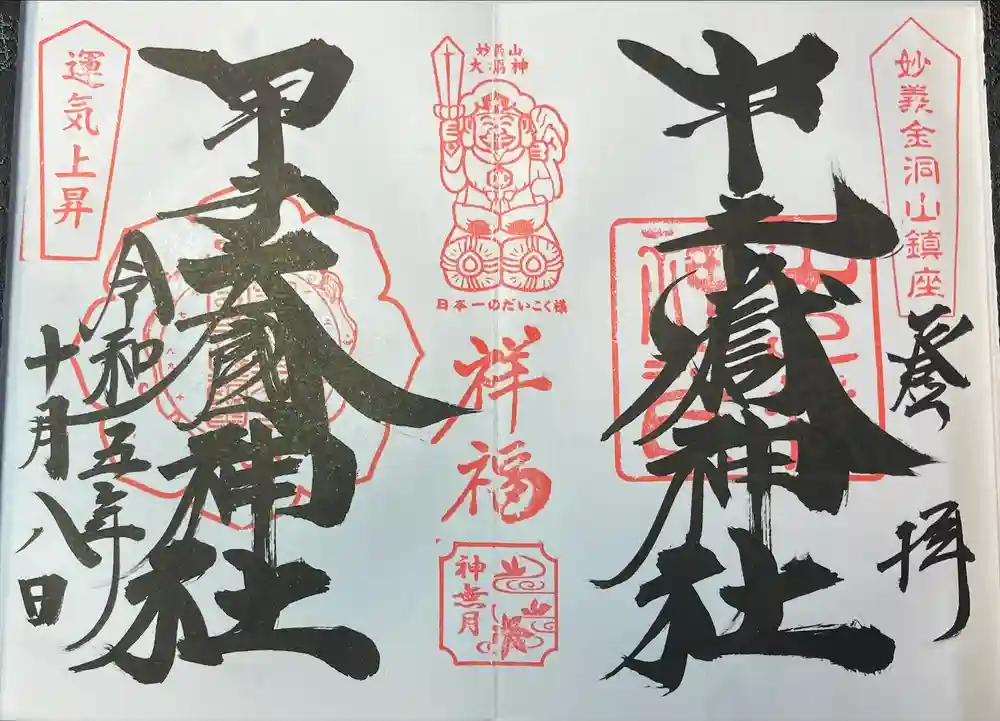 妙義金洞山鎮座
登拝
中之嶽神社
妙義山
大國神
日本一のだいこく様
祥福
神無月
甲子大國神社
運気上昇
令和五年
十月八日